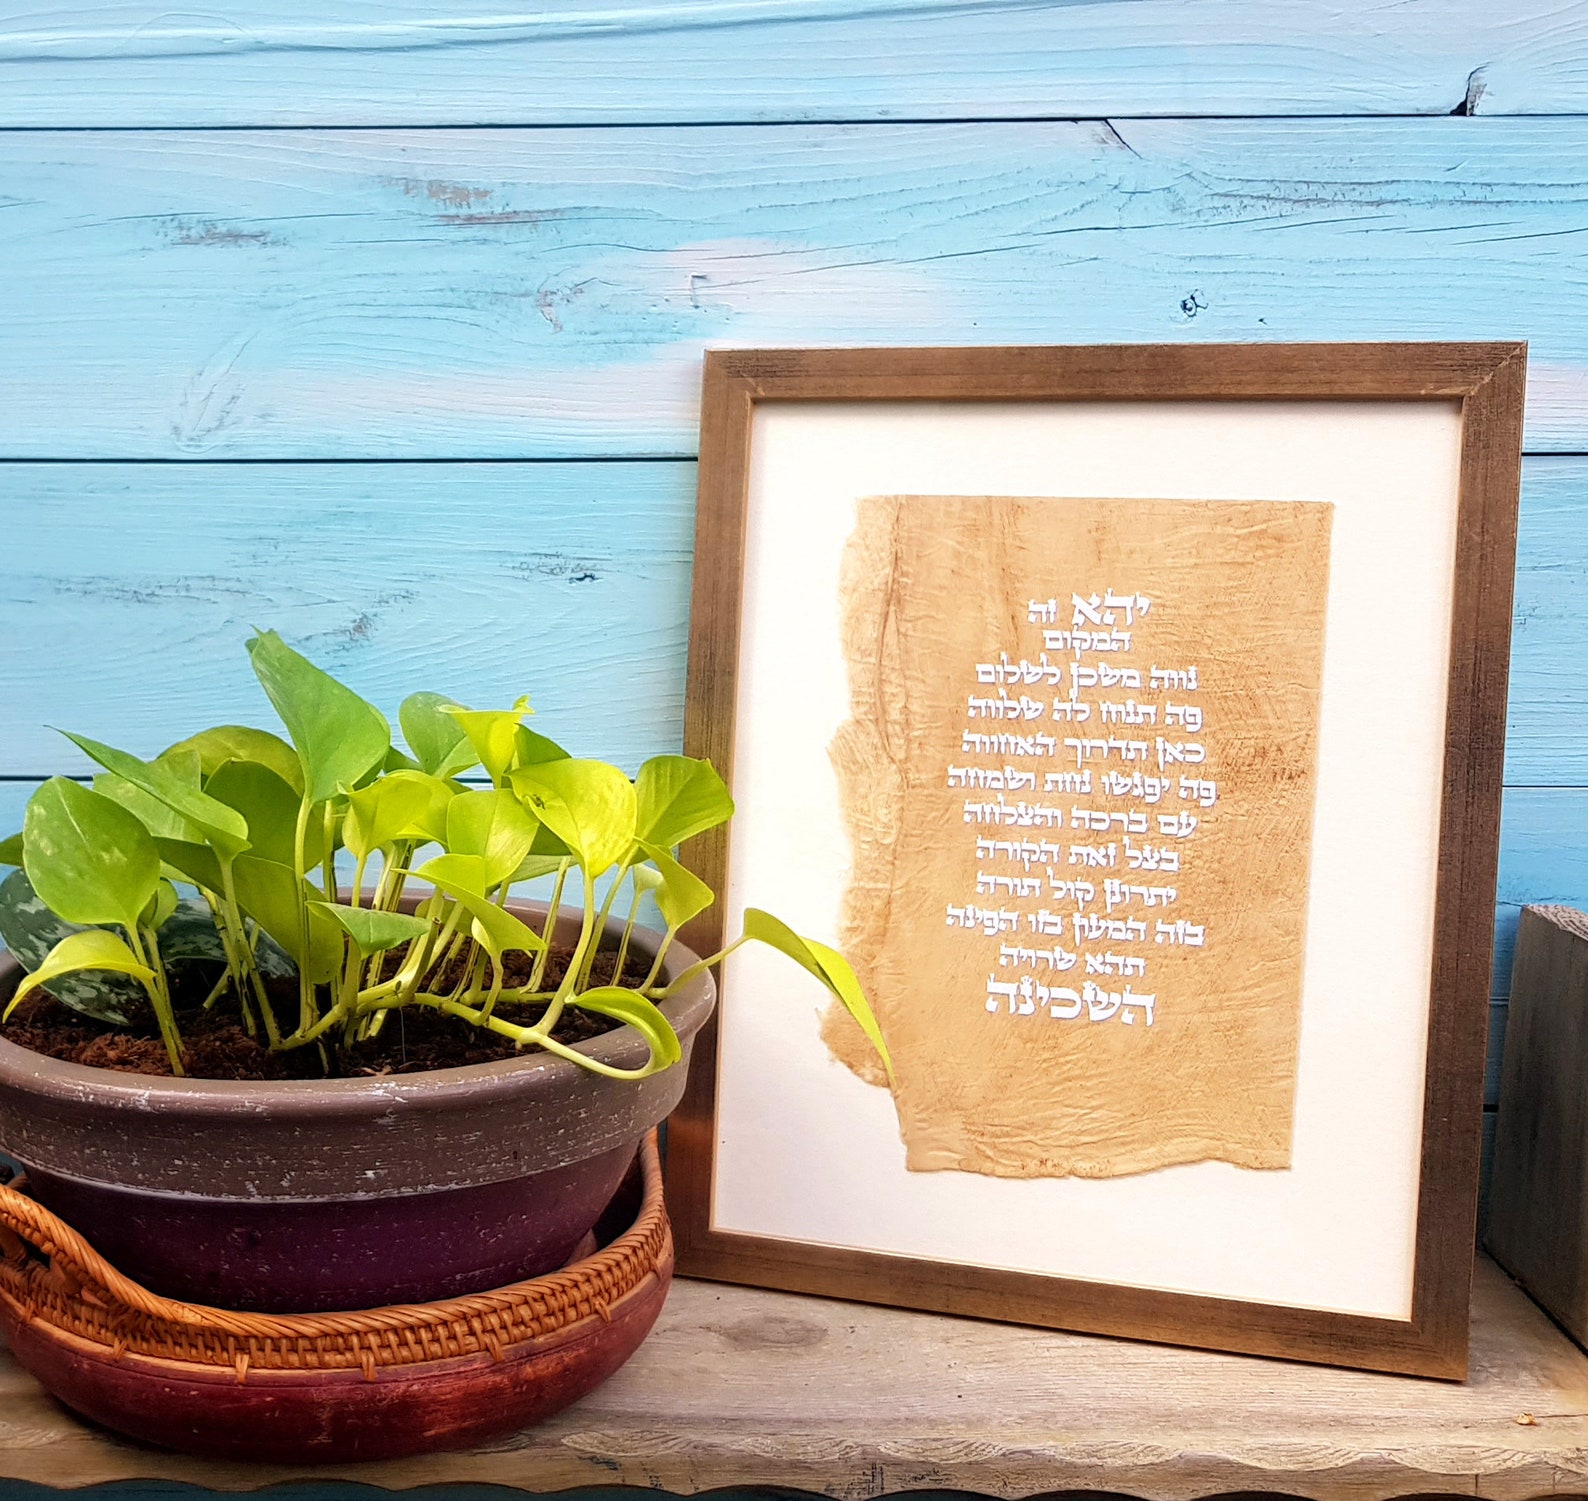 יהא זה
המקום
נווה משכן לשלום
פה תנוח לה שלווה
כאן תדרוך האחווה
פה יפגשו נחת ושמחה
עם ברכה והצלחה
בצל זאת הקורה
יתרונן קול תורה
בזה המעון בזו הפינה
תהא שרויה
השכינה